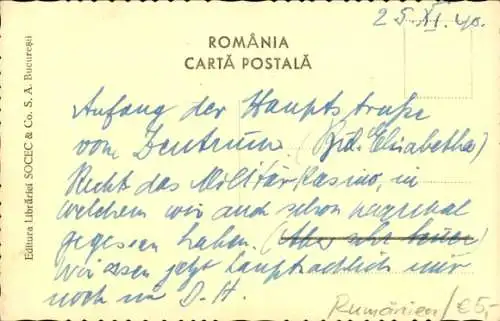 25.XI.40.
ROMÂNIA
CARTĂ POSTALĂ
Editura Librăriei SOCEC & Co. S. A. Bucureşti
Anfang der Hauptstraße
vom Zentrum (Bd. Elisabetha)
Recht das Militärkasino, in
welchem wir auch schon mal
gegessen haben. (Aber sehr teuer)
Wir essen jetzt hauptsächlich nur
noch im D. H.
Rumänien/€5,-